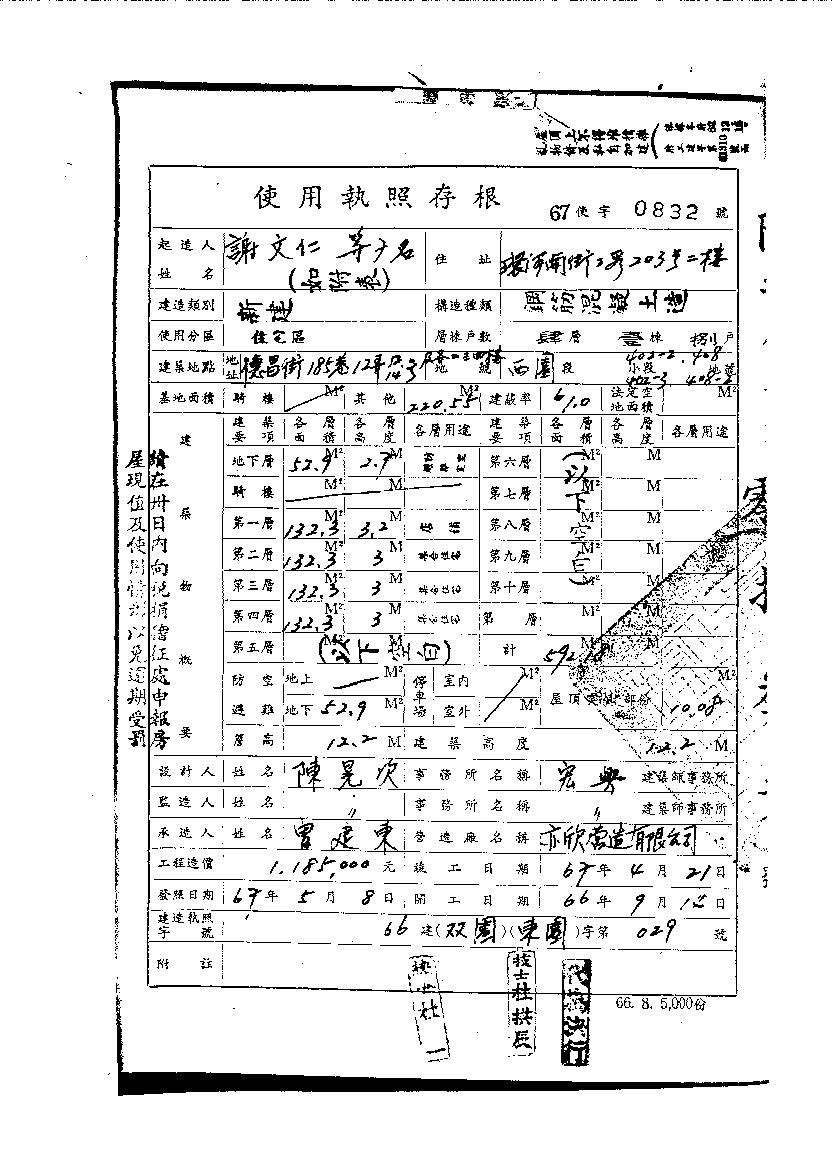 使用執照存根
67使字 0832 號
起造人姓名 謝文仁 等 名 (如附表) 住址 環河南街二段203號二樓
建造類別 新建 構造種類 鋼筋混凝土造
使用分區 住宅區 層棟戶數 肆層 壹棟 捌戶
建築地點 地址 德昌街185巷12弄 14号 地號 西園 段 小段 地號 402-2.408 402-3 408-2
基地面積 騎樓 M² 其他 220.55 M² 建蔽率 61.0 法定空地面積 M²
建築物概要
建築要項 各層面積 各層高度 各層用途 建築要項 各層面積 各層高度 各層用途
地下層 52.9 M² 2.7 M 第六層 M² M (以下空白)
騎樓 M² M 第七層 M² M
第一層 132.3 M² 3.2 M 第八層 M² M
第二層 132.3 M² 3 M 集合住宅 第九層 M² M
第三層 132.3 M² 3 M 集合住宅 第十層 M² M
第四層 132.3 M² 3 M 集合住宅 第 層 M² M
第五層 M² M (以下空白) 計 M²
防空避難 地上 M² 停車場 室內 M² 屋頂突出部份 M²
地下 52.9 M² 室外 M² 10.08
簷高 12.2 M 建築高度 12.2 M
設計人 姓名 陳晃次 事務所名稱 宏興 建築師事務所
監造人 姓名 〃 事務所名稱 〃 建築師事務所
承造人 姓名 曾建東 營造廠名稱 亦欣營造有限公司
工程造價 1,185,000 元 竣工日期 67年4月21日
發照日期 67年5月8日 開工日期 66年9月 日
建造執照字號 66建(双園)(東園)字第 029 號
附註
66. 8. 5,000份
請在卅日內向稅捐稽征處申報房
屋現值及使用情形以免逾期受罰
技士杜拱辰
代為決行